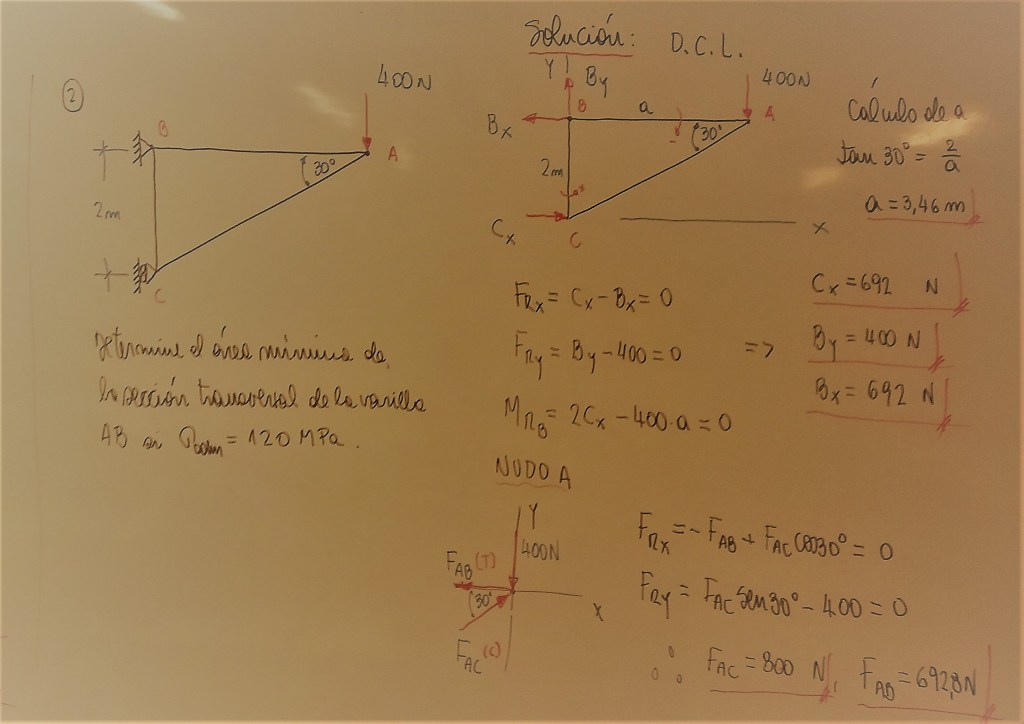 2
400N
B
A
30°
2m
C
Determine el área mínima de
la sección transversal de la varilla
AB si σadm = 120 MPa.
Solución: D.C.L.
Y
By
400N
Bx
B
a
A
30°
2m
Cx
C
x
Cálculo de a
tan 30° = 2/a
a = 3,46 m
FRx = Cx - Bx = 0
FRy = By - 400 = 0
MRB = 2Cx - 400·a = 0
=>
Cx = 692 N
By = 400 N
Bx = 692 N
NUDO A
Y
400N
FAB (T)
30°
x
FAC (C)
FRx = - FAB + FAC Cos30° = 0
FRy = FAC Sen30° - 400 = 0
∴ FAC = 800 N, FAB = 692,8 N